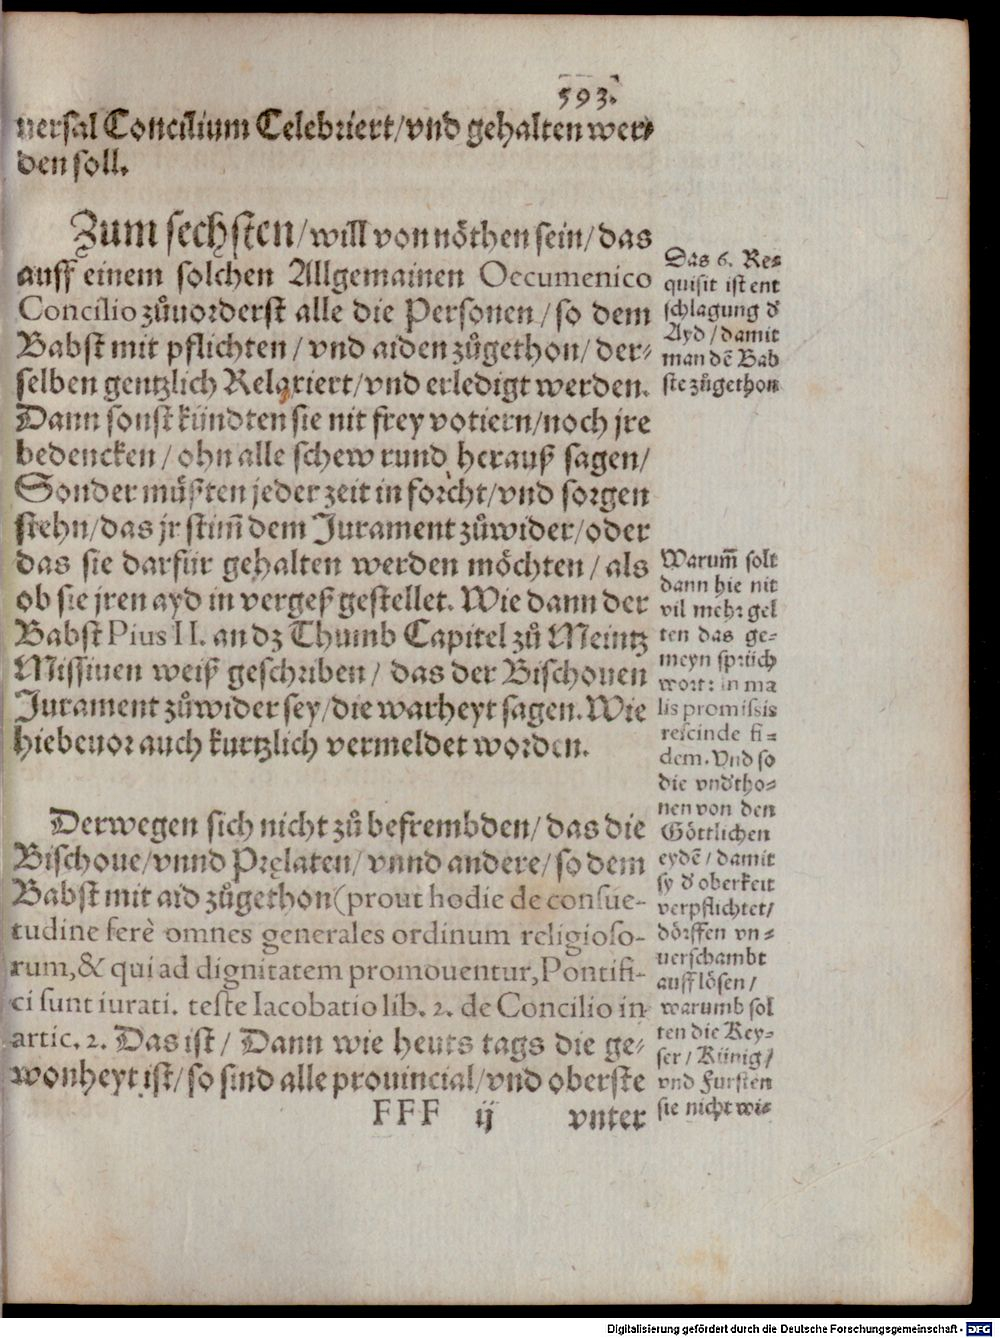 593.
uersal Concilium Celebriert/vnd gehalten wer⸗
den soll.
Zum sechsten/will von nöthen sein/das
auff einem solchen Allgemainen Oecumenico
Concilio zůuorderst alle die Personen/so dem
Babst mit pflichten/vnd aiden zůgethon/der⸗
selben gentzlich Relaxiert/vnd erledigt werden.
Dann sonst kündten sie nit frey votiern/noch jre
bedencken/ohn alle schew rund herauß sagen/
Sonder müßten jeder zeit in forcht/vnd sorgen
stehn/das jr stim̃ dem Jurament zůwider/oder
das sie darfür gehalten werden möchten/als
ob sie jren ayd in vergeß gestellet. Wie dann der
Babst Pius II. an dz Thumb Capitel zů Meintz
Missiuen weiß geschriben/das der Bischouen
Jurament zůwider sey/die warheyt sagen. Wie
hiebeuor auch kurtzlich vermeldet worden.
Derwegen sich nicht zů befrembden/das die
Bischoue/vnnd Pręlaten/vnnd andere/so dem
Babst mit aid zůgethon(prout hodie de consue-
tudine ferè omnes generales ordinum religioso-
rum,& qui ad dignitatem promouentur,Pontifi-
ci sunt iurati. teste Iacobatio lib. 2. de Concilio in
artic. 2. Das ist/Dann wie heuts tags die ge⸗
wonheyt ist/so sind alle prouincial/vnd oberste
FFF ij vnter
Das 6. Re⸗
quisit ist ent
schlagung d'
Ayd/damit
man dẽ Bab
ste zůgethon
Warum̃ solt
dann hie nit
vil mehr gel
ten das ge⸗
meyn sprüch
wort: in ma
lis promissis
rescinde fi⸗
dem. Vnd so
die vnd'tho⸗
nen von den
Göttlichen
eydẽ/damit
sy d' oberkeit
verpflichtet/
dörffen vn⸗
uerschambt
aufflösen/
warumb sol
ten die Key⸗
ser/Künig/
vnd Fursten
sie nicht wi⸗
Digitalisierung gefördert durch die Deutsche Forschungsgemeinschaft - DFG